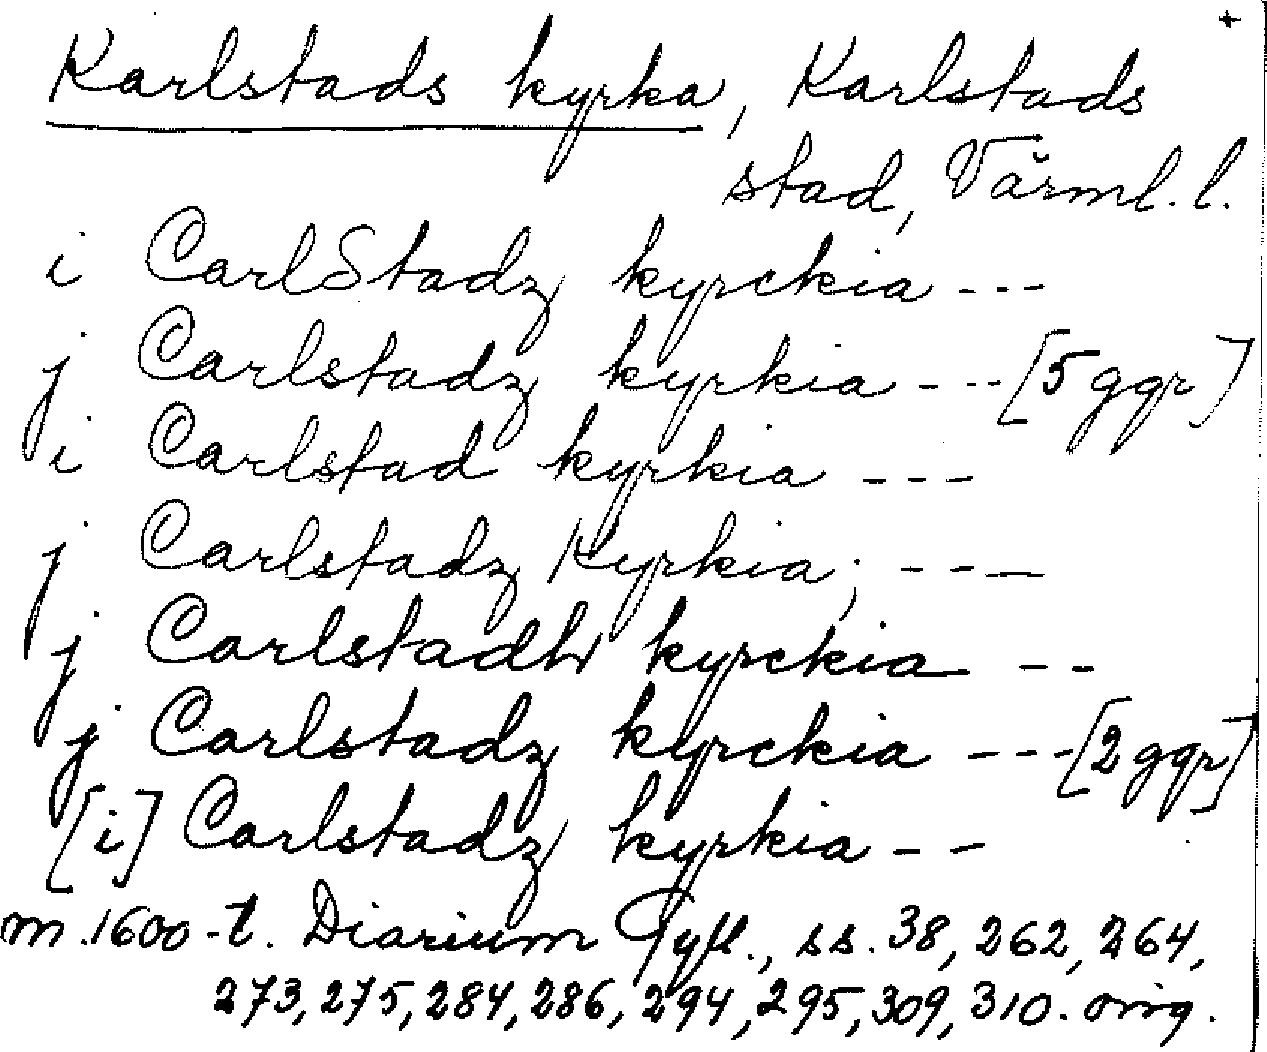 +
Karlstads kyrka, Karlstads
stad, Värml. l.
i CarlStadz kyrckia ---
j Carlstadz kyrkia --- [5 ggr]
i Carlstad kyrkia ---
j Carlstadz Kyrkia; ---
j Carlstadh kyrckia --
j Carlstadz kyrckia --- [2 ggr]
[i] Carlstadz kyrkia --
m. 1600-t. Diarium Gyll., ss. 38, 262, 264,
273, 275, 284, 286, 294, 295, 309, 310. orig.